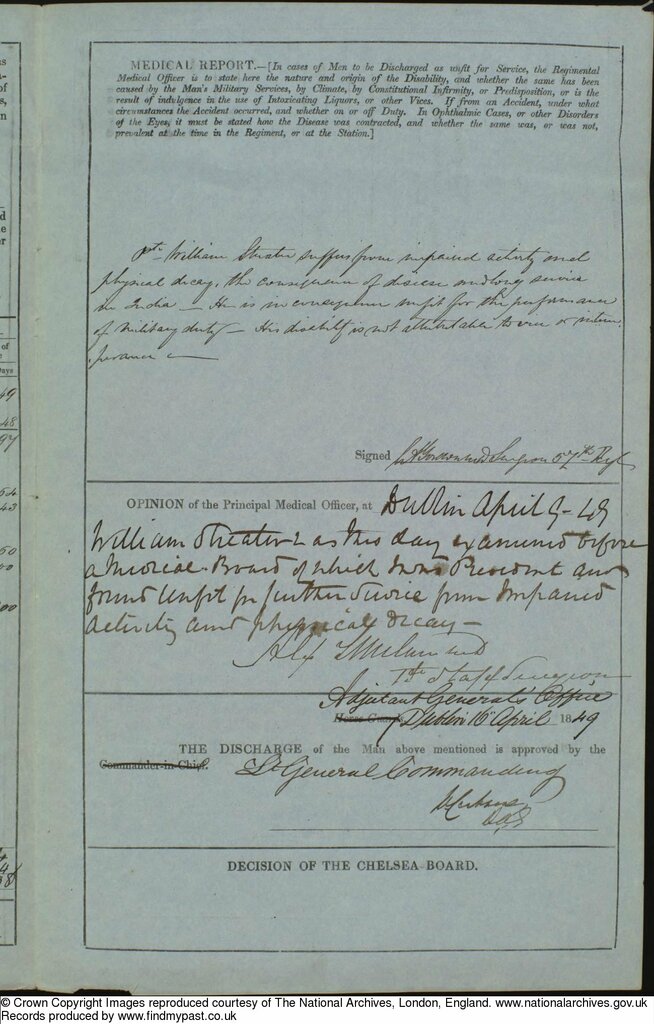 MEDICAL REPORT.—[In cases of Men to be Discharged as unfit for Service, the Regimental
Medical Officer is to state here the nature and origin of the Disability, and whether the same has been
caused by the Man's Military Services, by Climate, by Constitutional Infirmity, or Predisposition, or is the
result of indulgence in the use of Intoxicating Liquors, or other Vices. If from an Accident, under what
circumstances the Accident occurred, and whether on or off Duty. In Ophthalmic Cases, or other Disorders
of the Eyes, it must be stated how the Disease was contracted, and whether the same was, or was not,
prevalent at the time in the Regiment, or at the Station.]
Pte William Streater suffers from impaired activity and
physical decay, the consequence of disease and long service
in India — He is in consequence unfit for the performance
of Military duty — His disability is not attributable to vice or intem
perance —
Signed Surgeon 57th Regt
OPINION of the Principal Medical Officer, at Dublin April 9 - 49
William Streater was this day examined before
a Medical Board of which I was President and
found unfit for further Service from Impaired
activity and physical decay —
Alex MD
1st Staff Surgeon
Adjutant General's Office
Horse Guards Dublin 16 April 1849
THE DISCHARGE of the Man above mentioned is approved by the
Commander-in-Chief. Lt General Commanding
DAG
DECISION OF THE CHELSEA BOARD.
© Crown Copyright Images reproduced courtesy of The National Archives, London, England. www.nationalarchives.gov.uk
Records produced by www.findmypast.co.uk